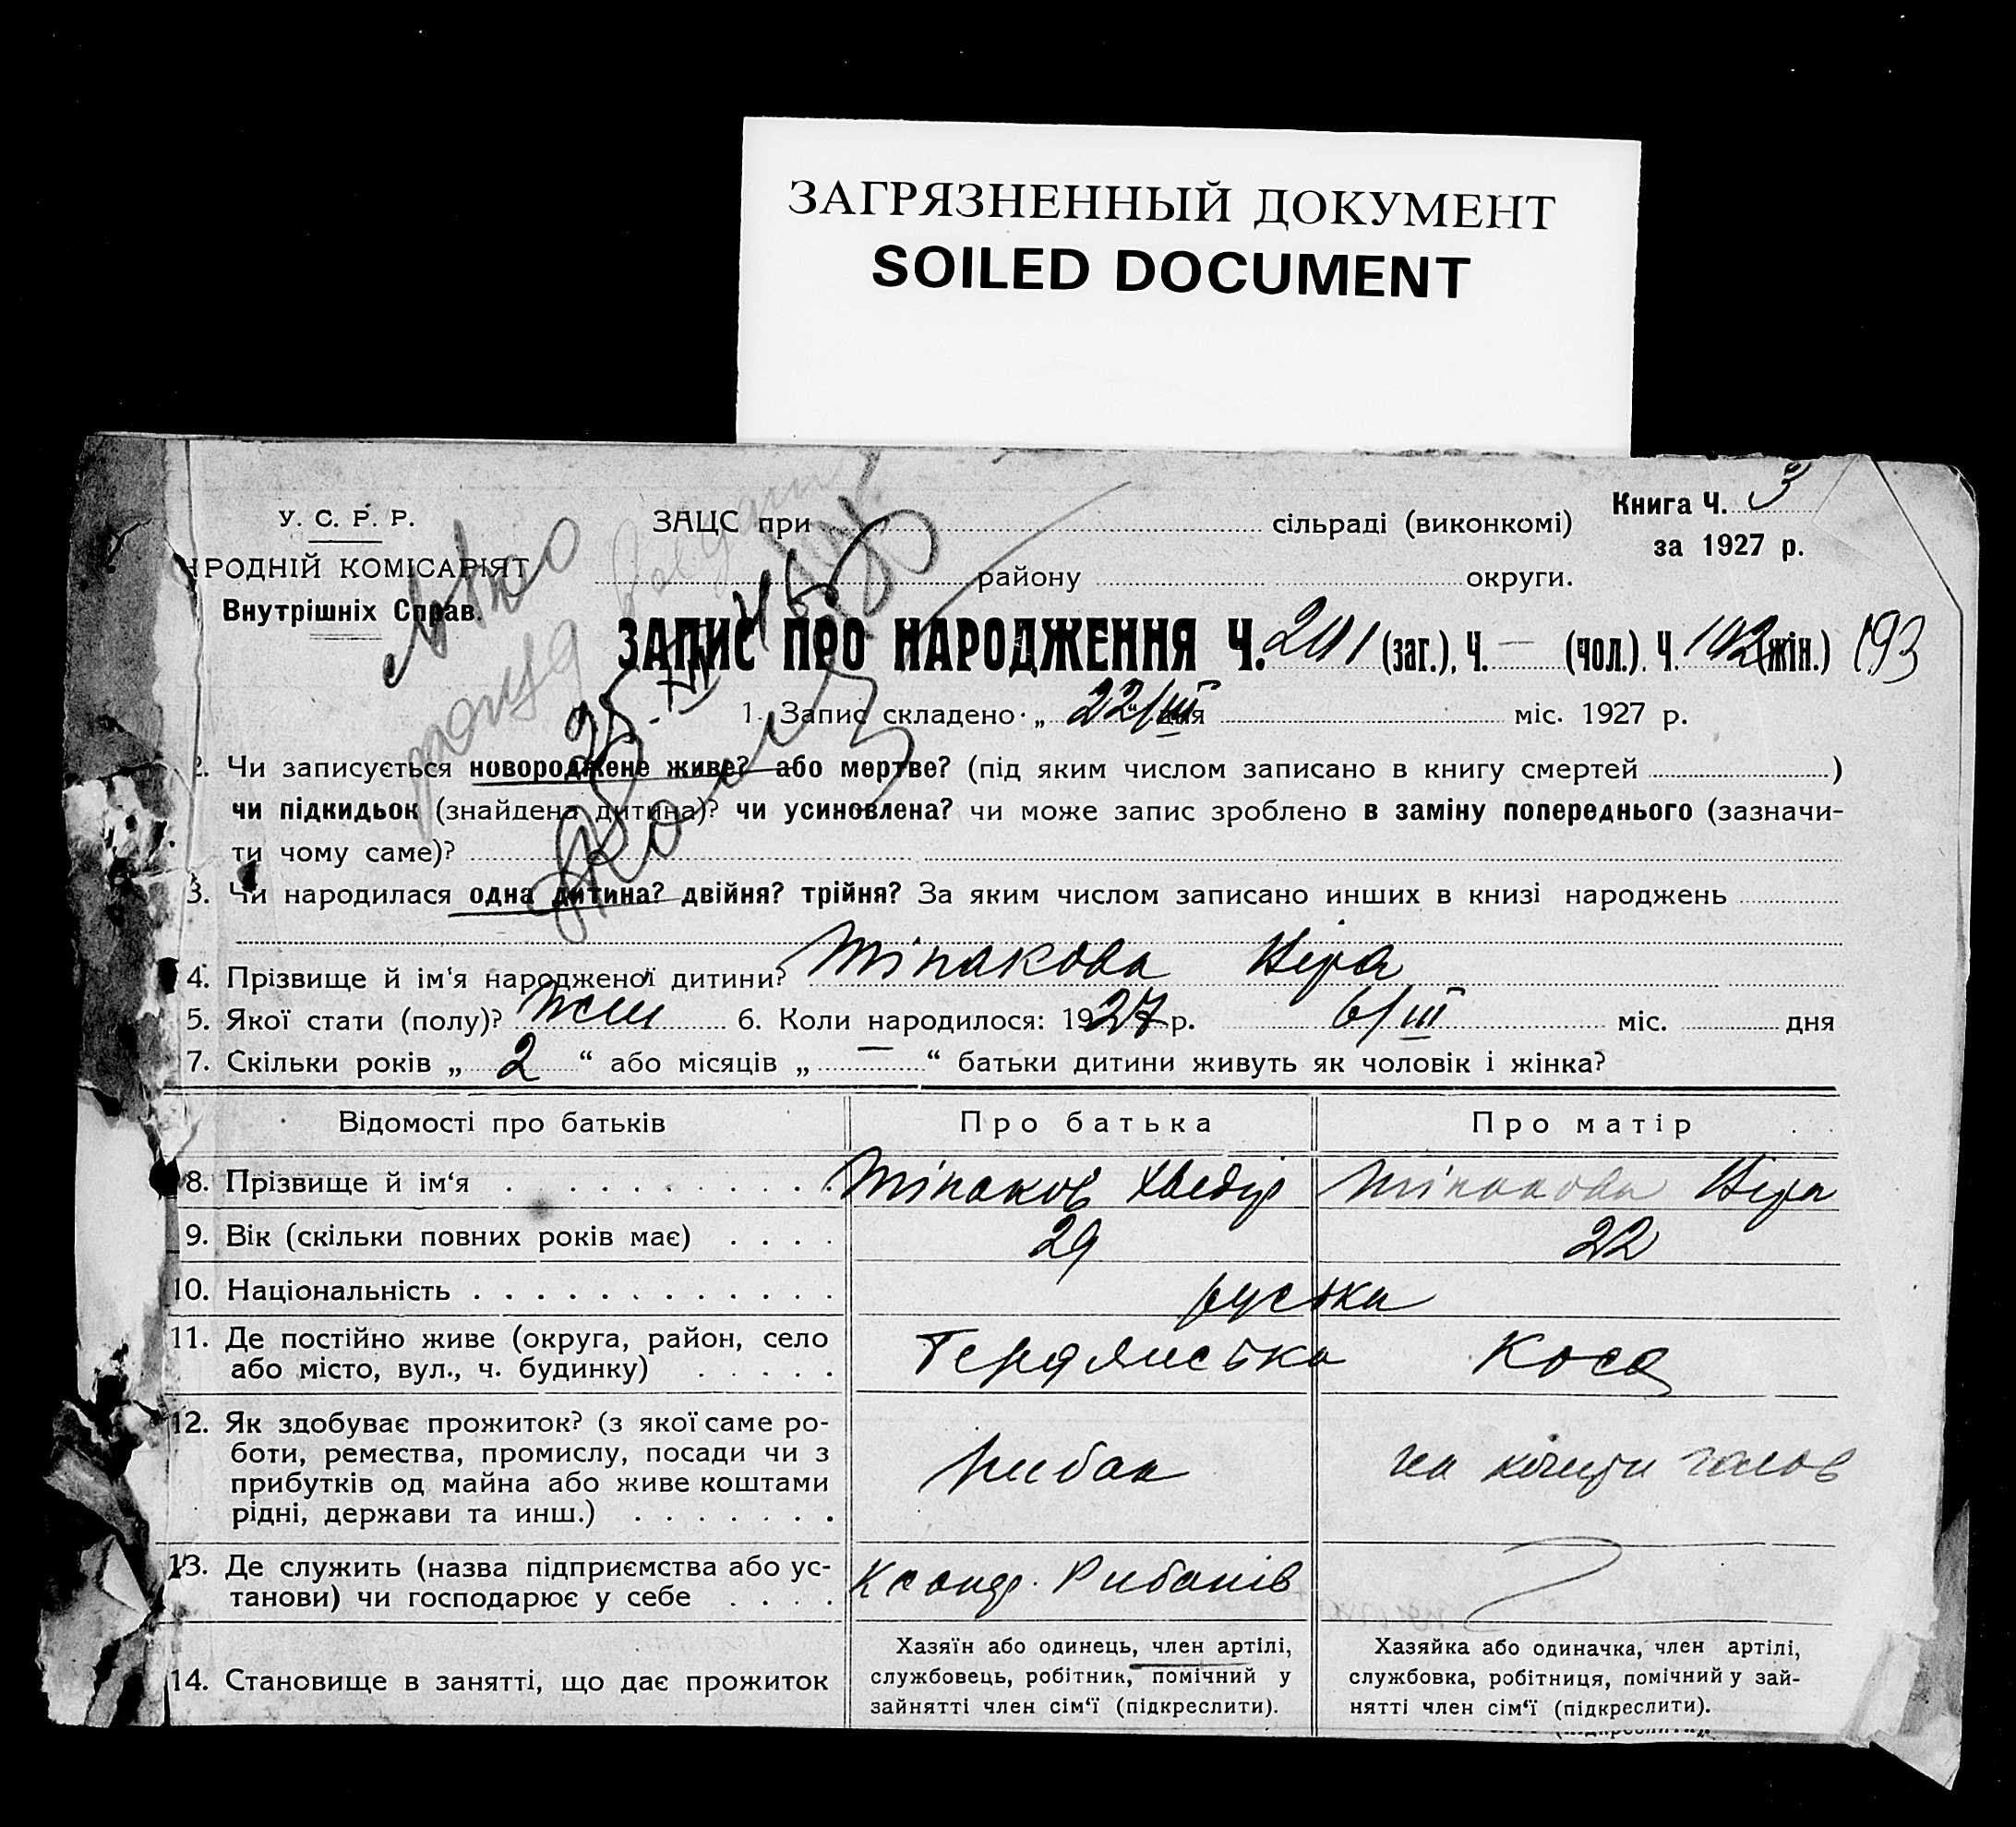 ЗАГРЯЗНЕННЫЙ ДОКУМЕНТ
SOILED DOCUMENT
У. С. Р. Р.
РОДНІЙ КОМІСАРІЯТ
Внутрішніх Справ.
ЗАЦС при сільраді (виконкомі)
району округи.
Книга Ч. 3
за 1927 р.
ЗАПИС ПРО НАРОДЖЕННЯ Ч. 201 (заг.), Ч. — (чол.). Ч. 102 (жін.) 193
1. Запис складено „ 22/III “ дня міс. 1927 р.
2. Чи записується новороджене живе? або мертве? (під яким числом записано в книгу смертей )
чи підкидьок (знайдена дитина)? чи усиновлена? чи може запис зроблено в заміну попереднього (зазначи-
ти чому саме)?
3. Чи народилася одна дитина? двійня? трійня? За яким числом записано инших в книзі народжень
4. Прізвище й ім‘я народженої дитини? Мінакова Віра
5. Якої стати (полу)? жін 6. Коли народилося: 1927 р. 6/III міс. дня
7. Скільки років „ 2 “ або місяців „ — “ батьки дитини живуть як чоловік і жінка?
Відомості про батьків Про батька Про матір
8. Прізвище й ім‘я Мінаков Хведір Мінакова Віра
9. Вік (скільки повних років має) 29 22
10. Національність руська
11. Де постійно живе (округа, район, село
або місто, вул., ч. будинку)
Бердянська Коса
12. Як здобуває прожиток? (з якої саме ро-
боти, ремества, промислу, посади чи з
прибутків од майна або живе коштами
рідні, держави та инш.)
рибак
на кошти
13. Де служить (назва підприємства або ус-
танови) чи господарює у себе
Кооп. Рибаків
14. Становище в занятті, що дає прожиток
Хазяїн або одинець, член артілі,
службовець, робітник, помічний у
зайнятті член сім‘ї (підкреслити).
Хазяйка або одиначка, член артілі,
службовка, робітниця, помічний у зай-
нятті член сім‘ї (підкреслити).